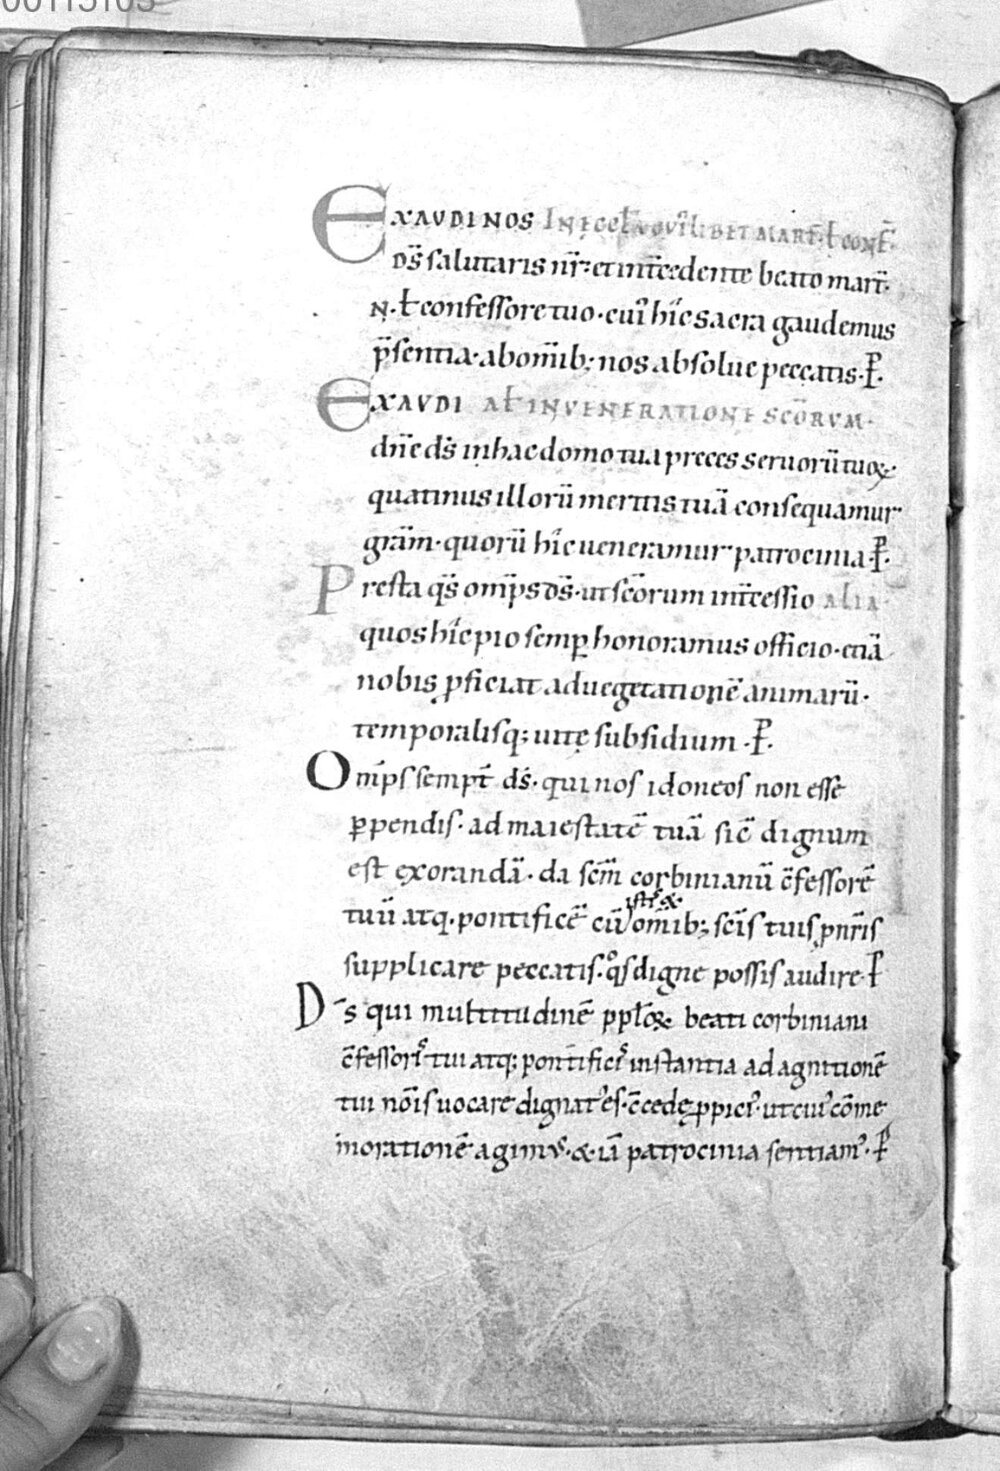 00113103
EXAUDI NOS IN ECCƚA CUIꝰLIBET MART̄. ƚ CONF̄.
d̄s salutaris nr̄. et int̄cedente beato mart̄.
N. ƚ confessore tuo. cuiꝰ hic sacra gaudemus
p̄sentia. ab om̄ib; nos absolue peccatis. P̱.
EXAUDI Aƚ IN UENERATIONE SC̄ORUM.
dn̄e d̄s in hac domo tua preces seruorū tuoꝝ.
quatinus illorū meritis tuā consequamur
grām. quorū hic ueneramur patrocinia. P̱.
Presta q̄s om̄ps d̄s. ut sc̄orum int̄cessio ALIA.
quos hic pio semꝑ honoramus officio. etiā
nobis ꝓficiat ad uegetationē animarū.
temporalisq; uitę subsidium. P̱.
Om̄ps sempt̄ d̄s. qui nos idoneos non esse
ꝑpendis. ad maiestatē tuā sic̄ dignum
est exorandā. da sc̄m corbinianū c̄fessorē
tuū atq. pontificē cū om̄ib; sc̄is tuis ꝓ nr̄is
supplicare peccatis. q̊s digne possis audire. P̱
D̄s qui multitudinē pplōꝝ beati corbiniani
c̄fessorꝭ tui atq; pontificꝭ instantia ad agnitionē
tui nōis uocare dignatꝰ es. c̄cede ꝓpiciꝰ. ut cuiꝰ cōme
morationē agimꝰ. & iā patrocinia sentiamꝰ. P̱